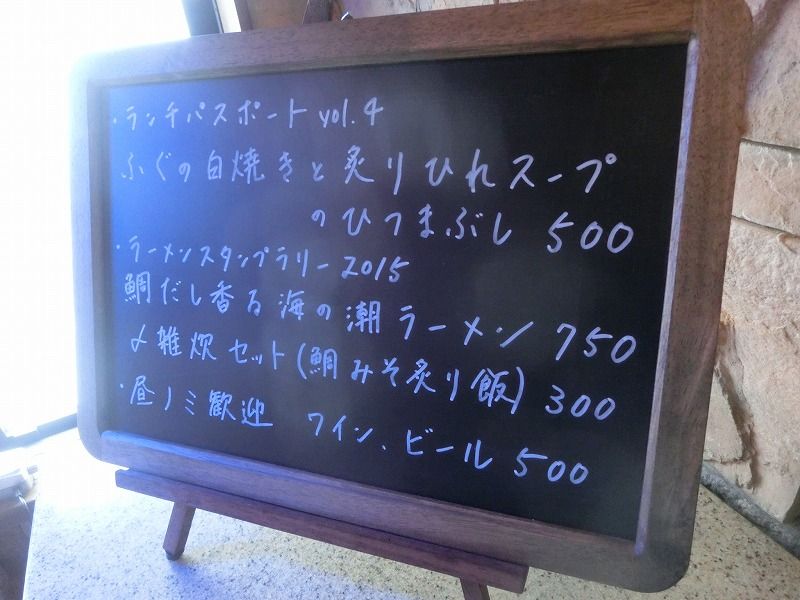 ・ランチパスポート vol.4
ふぐの白焼きと炙りひれスープ
のひつまぶし 500
・ラーメンスタンプラリー2015
鯛だし香る海の潮ラーメン 750
〆雑炊セット(鯛みそ炙り飯) 300
・昼ノミ歓迎 ワイン、ビール 500